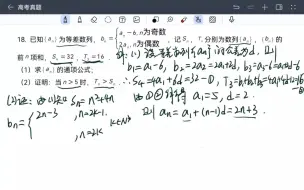 高考真题
18. 已知{aₙ}为等差数列, bₙ = { aₙ-6, n为奇数
2aₙ, n为偶数
记Sₙ, Tₙ分别为数列{aₙ}, {bₙ}的
前n项和, S₄=32, T₃=16.
(1) 求{aₙ}的通项公式;
(2) 证明: 当n>5时, Tₙ>Sₙ.
解: (1) 设等差数列{aₙ}的公差为d, 则
b₁=a₁-6, b₂=2a₂=2a₁+2d, b₃=a₃-6=a₁+2d-6
∴ S₄=4a₁+6d=32-①, T₃=b₁+b₂+b₃
由①②解得 a₁=5, d=2.
则 aₙ=a₁+(n-1)d=2n+3.
(2)证: 由(1)知 Sₙ=n²+4n
bₙ= { 2n-3 , n=2k-1.
, n=2k
k∈N*